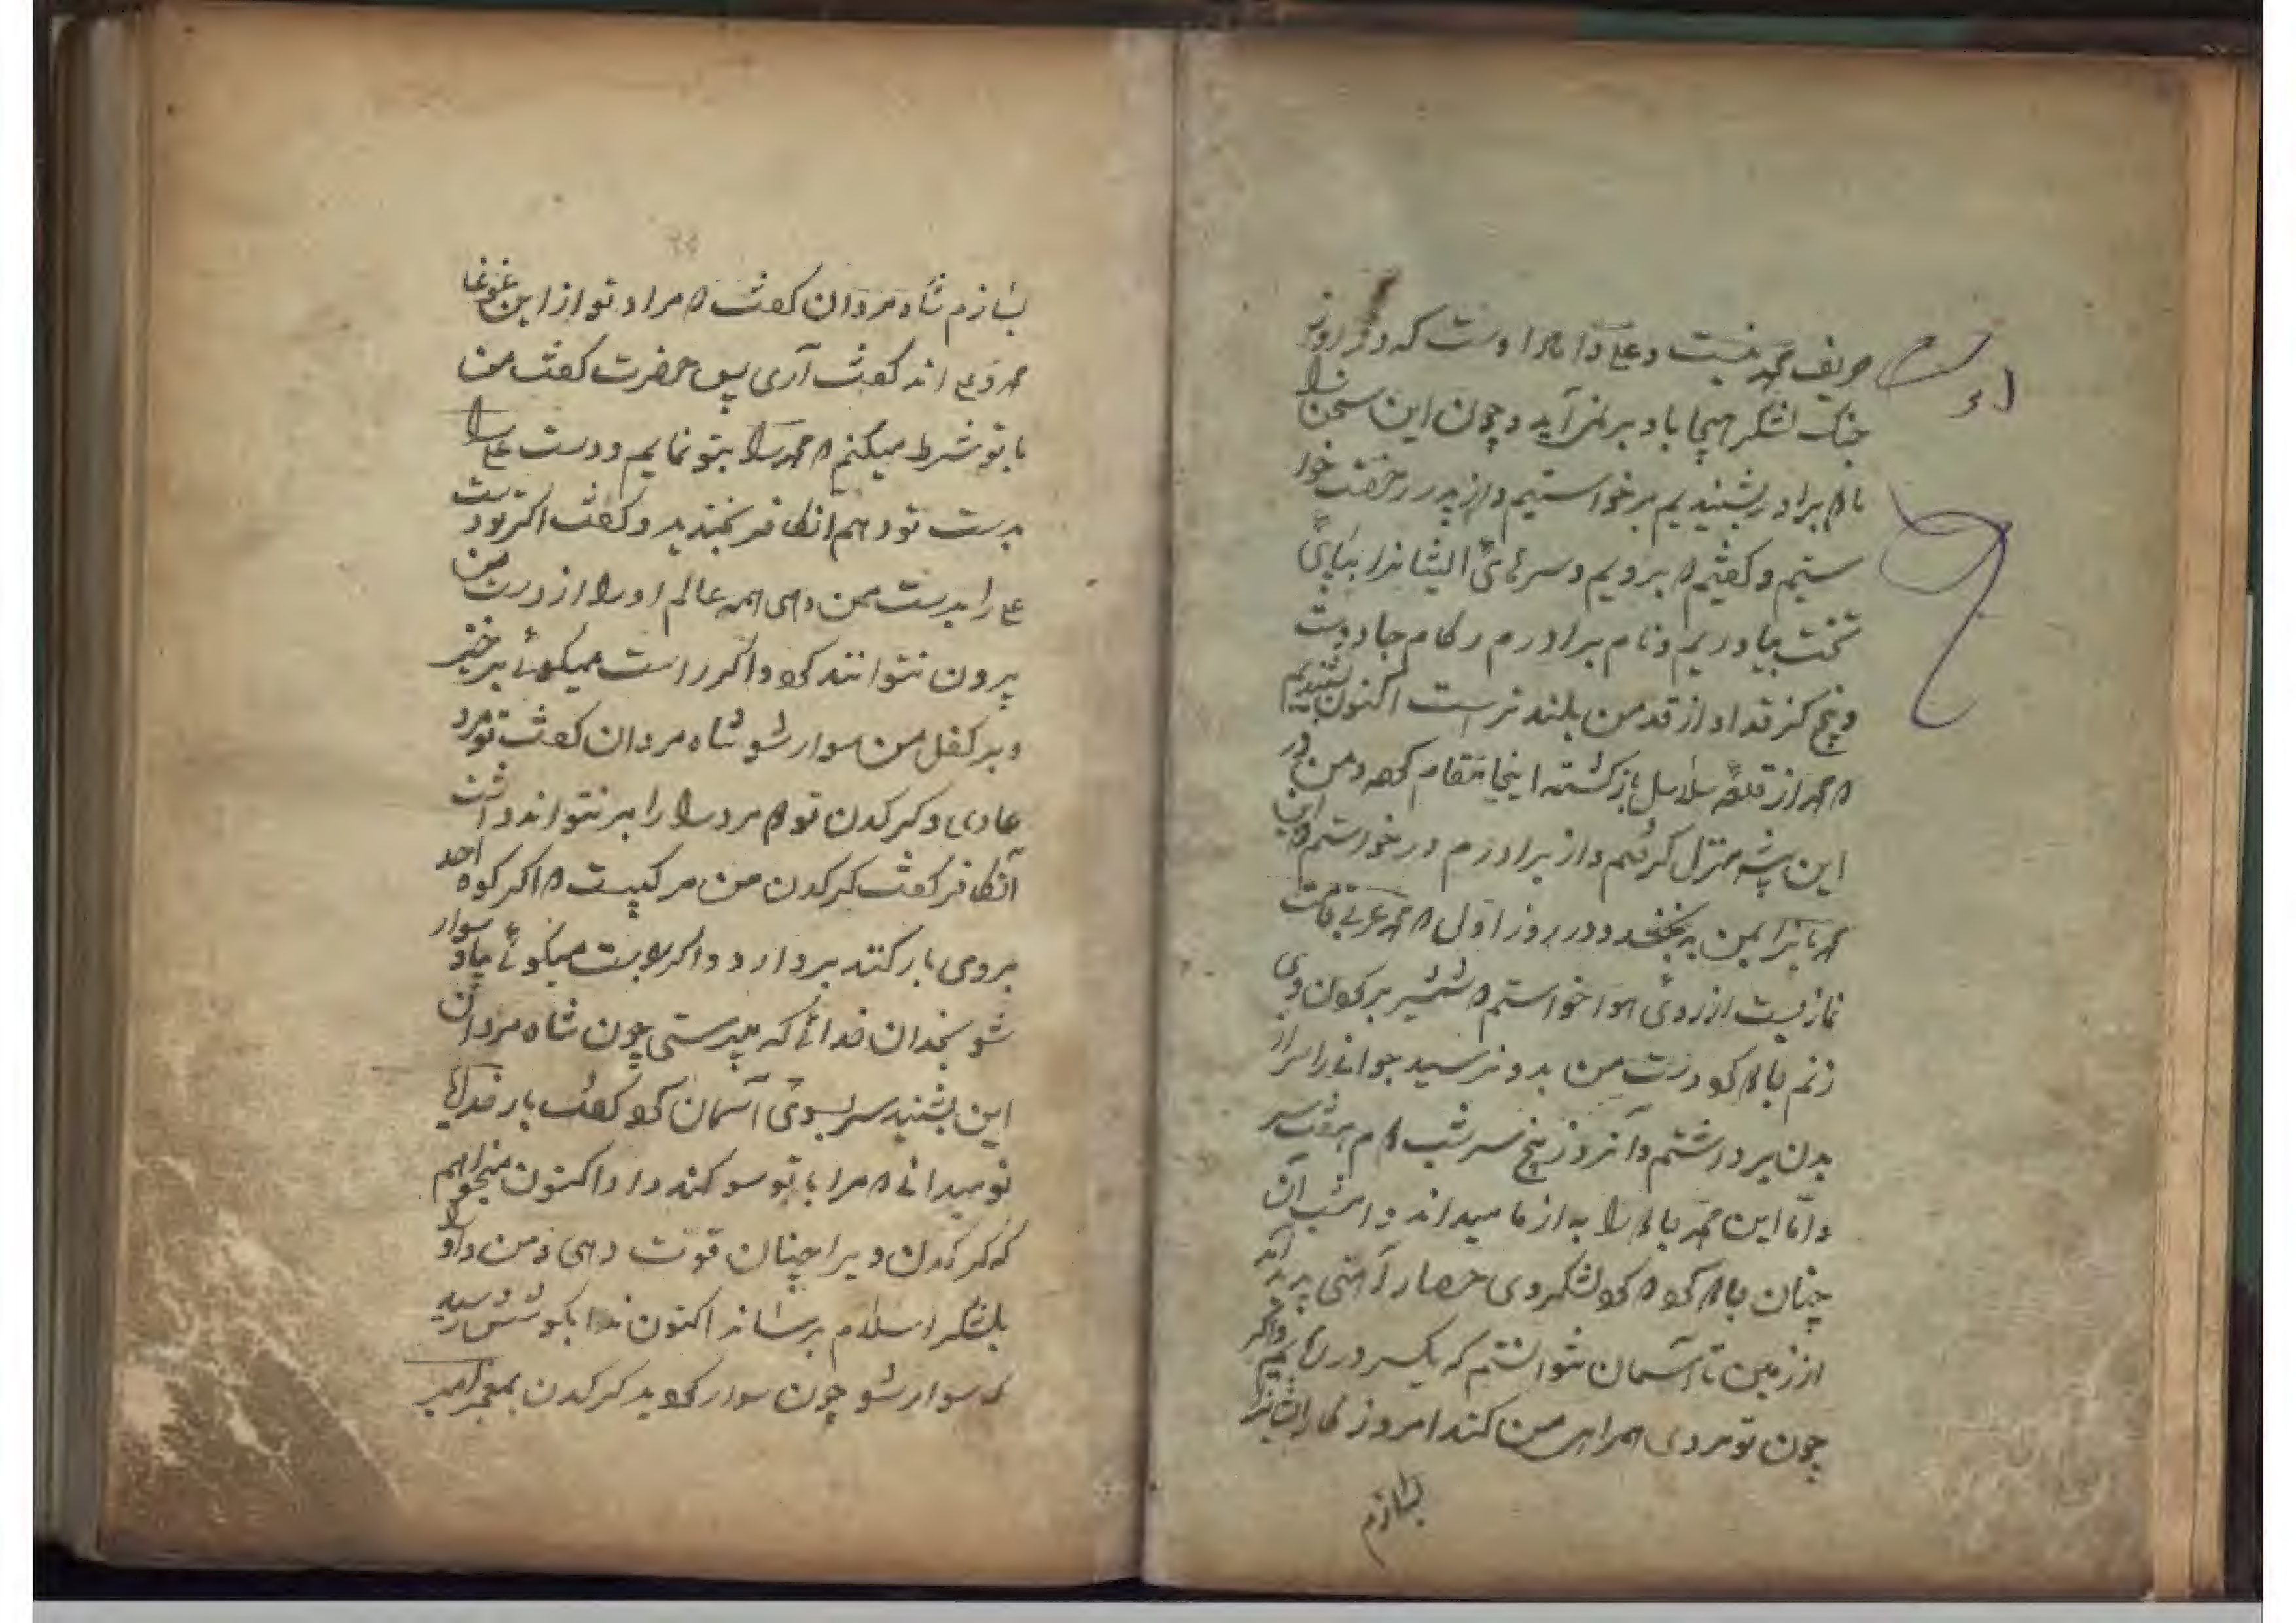 حریف محمد نیست و علی داماد اوست که در روز
جنک لشکر هیجا با او برنمی آید و چون این سخن را
با برادر بشنیدیم برخواستیم و از پدر رخصت خوا
ستیم و کفتیم که برویم و سرهای ایشانرا بپای
تخت بیاوریم و نام برادرم رکام جادوست
و پنج کز قد او از قد من بلند تر است اکنون شنیدیم
که محمد از قلعه سلاسل باز کشته اینجا مقام کرده و من در
این بیشه منزل کرفتم و از برادرم در خورستم که این
محمد را بمن به بخشد و در روز اول که محمد عربی قامت
نماز بست از روی هوا خواستم که شمشیر بر کردن وی
زنم دست من بدو نرسید جوانی را سر از
بدن برداشتم و آنروز پنج سر شب هم هفت سر
و اما این محمد را به از ما میداند و امشب آن
چنان کرد که کرد لشکر وی حصار آهنی پدید آمد
از زمین تا آسمان نتوانستم که یکسر در ربایم و اکر
چون تو مردی همراهی من کند امروز کار ایشانرا
بسازم
بسازم شاه مردان کفت که مراد تو از این غوغا
محمد و علی اند کفت آری پس حضرت کفت من
با تو شرط میکنم که محمد را بتو نمایم و دست علی را
بدست تو دهم انکافر بخندید و کفت اکر تو دست
علی را بدست من دهی همه عالم او را از دست من
بیرون نتوانند کرد و اکر راست میکوئی برخیز
و بر کفل من سوار شو شاه مردان کفت تو مرد
عادی و کرکدن تو دو مرد را بر نتواند داشت
آنکافر کفت کرکدن من مرکبیست که اکر کوه احد
بروی بار کنند بردارد و اکر راست میکوئی بیا و سوار
شو بخدان خدائی که میپرستی چون شاه مردان
این بشنید سر بسوی آسمان کرد کفت بار خدایا
تو میدانی که مرا با تو سوکند داد و اکنون میخواهم
که کرکدن ویرا چنان قوت دهی که من و او را
بلشکر اسلام برساند اکنون ندا بکوشش رسید
که سوار شو چون سوار کردید کرکدن بمعجز امیر